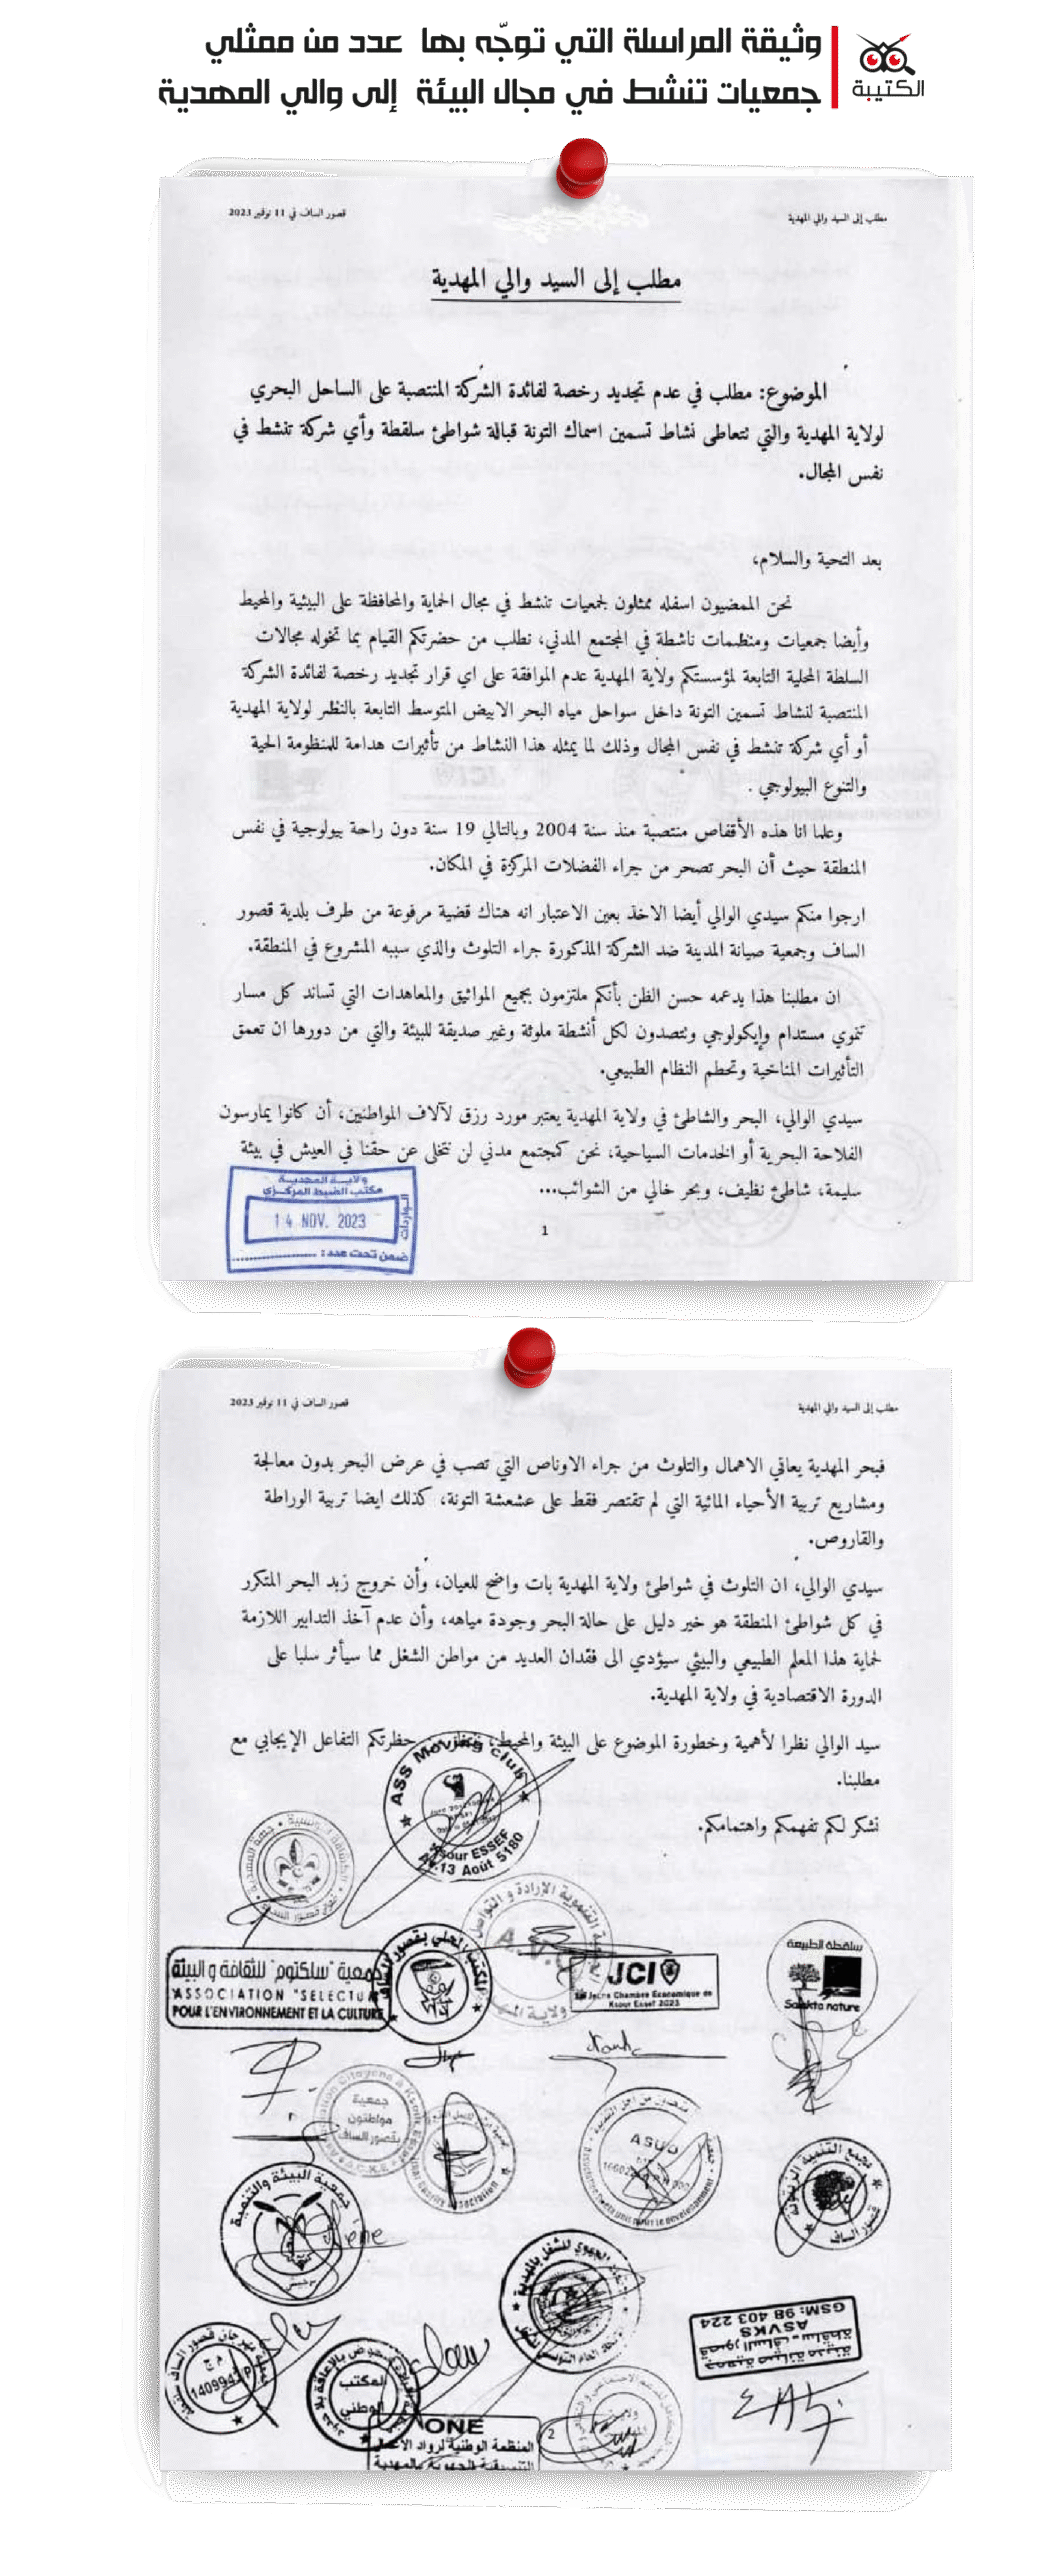 وثيقة المراسلة التي توجّه بها عدد من ممثلي
جمعيات تنشط في مجال البيئة إلى والي المهدية
الكتيبة
مطلب إلى السيد والي المهدية
قصور الساف في 11 نوفمبر 2023
مطلب إلى السيد والي المهدية
الموضوع: مطلب في عدم تجديد رخصة لفائدة الشركة المنتصبة على الساحل البحري
لولاية المهدية والتي تتعاطى نشاط تسمين اسماك التونة قبالة شواطئ سلقطة وأي شركة تنشط في
نفس المجال.
بعد التحية والسلام،
نحن الممضيون اسفله ممثلون لجمعيات تنشط في مجال الحماية والمحافظة على البيئية والمحيط
وأيضا جمعيات ومنظمات ناشطة في المجتمع المدني، نطلب من حضرتكم القيام بما تخوله مجالات
السلطة المحلية التابعة لمؤسستكم ولاية المهدية عدم الموافقة على اي قرار تجديد رخصة لفائدة الشركة
المنتصبة لنشاط تسمين التونة داخل سواحل مياه البحر الابيض المتوسط التابعة بالنظر لولاية المهدية
أو أي شركة تنشط في نفس المجال وذلك لما يمثله هذا النشاط من تأثيرات هدامة للمنظومة الحية
والتنوع البيولوجي .
وعلما انا هذه الأقفاص منتصبة منذ سنة 2004 وبالتالي 19 سنة دون راحة بيولوجية في نفس
المنطقة حيث أن البحر تصحر من جراء الفضلات المركزة في المكان.
ارجوا منكم سيدي الوالي أيضا الاخذ بعين الاعتبار انه هناك قضية مرفوعة من طرف بلدية قصور
الساف وجمعية صيانة المدينة ضد الشركة المذكورة جراء التلوث والذي سببه المشروع في المنطقة.
ان مطلبنا هذا يدعمه حسن الظن بأنكم ملتزمون بجميع المواثيق والمعاهدات التي تساند كل مسار
تنموي مستدام وإيكولوجي وتتصدون لكل أنشطة ملوثة وغير صديقة للبيئة والتي من دورها ان تعمق
التأثيرات المناخية وتحطم النظام الطبيعي.
سيدي الوالي، البحر والشاطئ في ولاية المهدية يعتبر مورد رزق لآلاف المواطنين، أن كانوا يمارسون
الفلاحة البحرية أو الخدمات السياحية، نحن كمجتمع مدني لن نتخلى عن حقنا في العيش في بيئة
سليمة، شاطئ نظيف، وبحر خالي من الشوائب...
ولاية المهدية
مكتب الضبط المركزي
14 NOV. 2023
الواردات
ضمن تحت عدد :
1
مطلب إلى السيد والي المهدية
قصور الساف في 11 نوفمبر 2023
فبحر المهدية يعاني الاهمال والتلوث من جراء الاوناص التي تصب في عرض البحر بدون معالجة
ومشاريع تربية الأحياء المائية التي لم تقتصر فقط على عشعشة التونة، كذلك ايضا تربية الوراطة
والقاروص.
سيدي الوالي، ان التلوث في شواطئ ولاية المهدية بات واضح للعيان، وأن خروج زبد البحر المتكرر
في كل شواطئ المنطقة هو خير دليل على حالة البحر وجودة مياهه، وأن عدم آخذ التدابير اللازمة
لحماية هذا المعلم الطبيعي والبيئي سيؤدي الى فقدان العديد من مواطن الشغل مما سيأثر سلبا على
الدورة الاقتصادية في ولاية المهدية.
سيد الوالي نظرا لأهمية وخطورة الموضوع على البيئة والمحيط، حظرتكم التفاعل الإيجابي مع
مطلبنا.
نشكر لكم تفهمكم واهتمامكم.
ASS Moving club
Ksour ESSEF
Av.13 Août 5180
جمعية "سلكتوم" للثقافة و البيئة
ASSOCIATION "SELECTUM"
POUR L'ENVIRONNEMENT ET LA CULTURE
المكتب المحلي بقصور الساف
التنموية الإرادة و التواصل
JCI
Jeune Chambre Economique de
Ksour Essef 2023
سلقطة الطبيعة
Salakta nature
جمعية
مواطنون
بقصور الساف
ASUD
مجمع التنمية
قصور الساف
جمعية البيئة والتنمية
الجهوي للشغل بالمهدية
GSM: 98 403 224
ASVKS
المكتب
الوطني
ONE
المنظمة الوطنية لرواد الأعمال
التنسيقية الجهوية بالمهدية
2